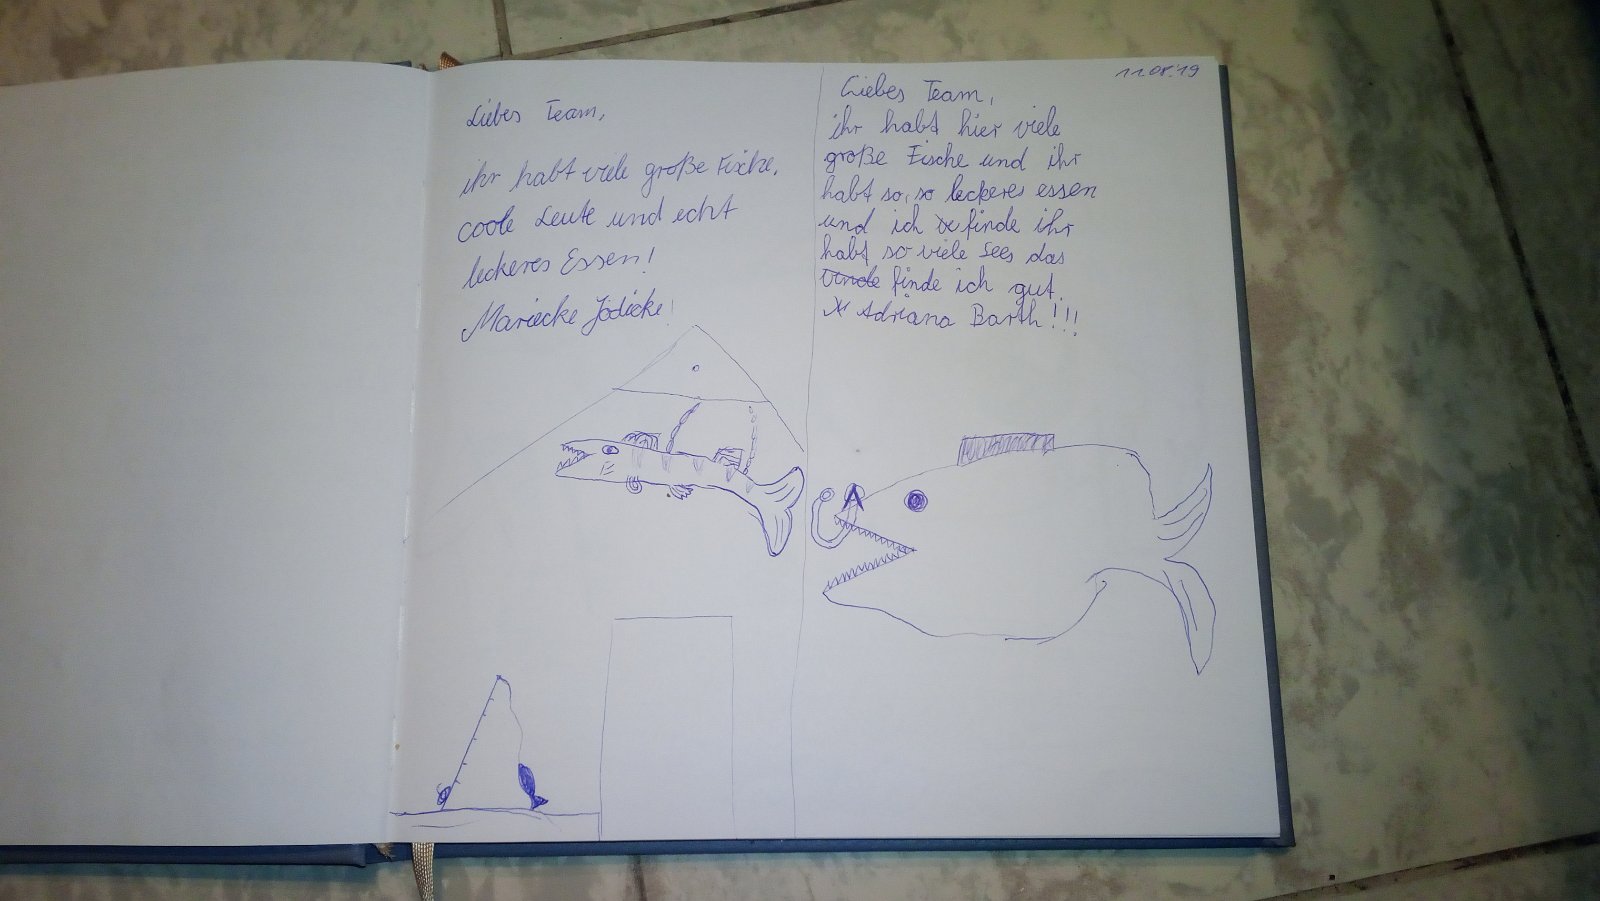 Liebes Team,
ihr habt viele große Fische,
coole Leute und echt
leckeres Essen!
Mariecke Jödicke!
11.08.'19
Liebes Team,
ihr habt hier viele
große Fische und ihr
habt so, so leckeres essen
und ich finde ihr
habt so viele Sees das
finde ich gut.
Adriana Barth!!!